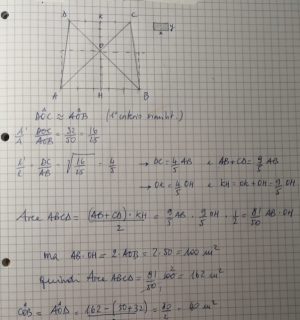 D K C
O
A H B
y
x
DOC ≈ AOB (1° criterio
A'/A = DOC/AOB = 32/50 = 16/25
= DC/AB = √16/25 = 4/5 → DC = 4/5 AB e AB+CD = 9/5 AB
→ OK = 4/5 OH e KH = OK + OH = 9/5 OH
Area ABCD = (AB+CD)·KH/2 = 9/5 AB · 9/5 OH · 1/2 = 81/50 AB·OH
ma AB·OH = 2·AOB = 2·50 = 100 m²
quindi Area ABCD = 81/50 · 100 = 162 m²
COB = AOD = 162 - (50+32) = 40 m²